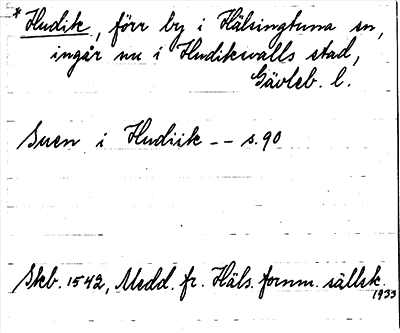 * Hudik, förr by i Hälsingtuna sn,
ingår nu i Hudiksvalls stad,
Gävleb. l.
Suen i Hudiik -- s. 90
Skb. 1542, Medd. fr. Häls. fornm. sällsk.
1933